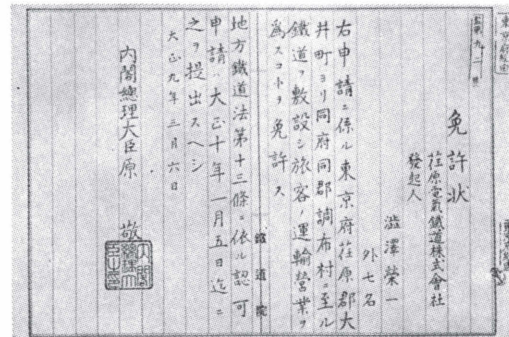 東京府経由
監第九二號
免許状
荏原電氣鐵道株式會社
發起人
澁澤榮一
外七名
右申請ニ係ル東京府荏原郡大
井町ヨリ同府同郡調布村ニ至ル
鐵道ヲ敷設シ旅客ノ運輸營業ヲ
爲スコトヲ免許ス
鐵道院
地方鐵道法第十三條ニ依ル認可
申請ハ大正十年一月五日迄ニ
之ヲ提出スヘシ
大正九年三月六日
内閣總理大臣原敬